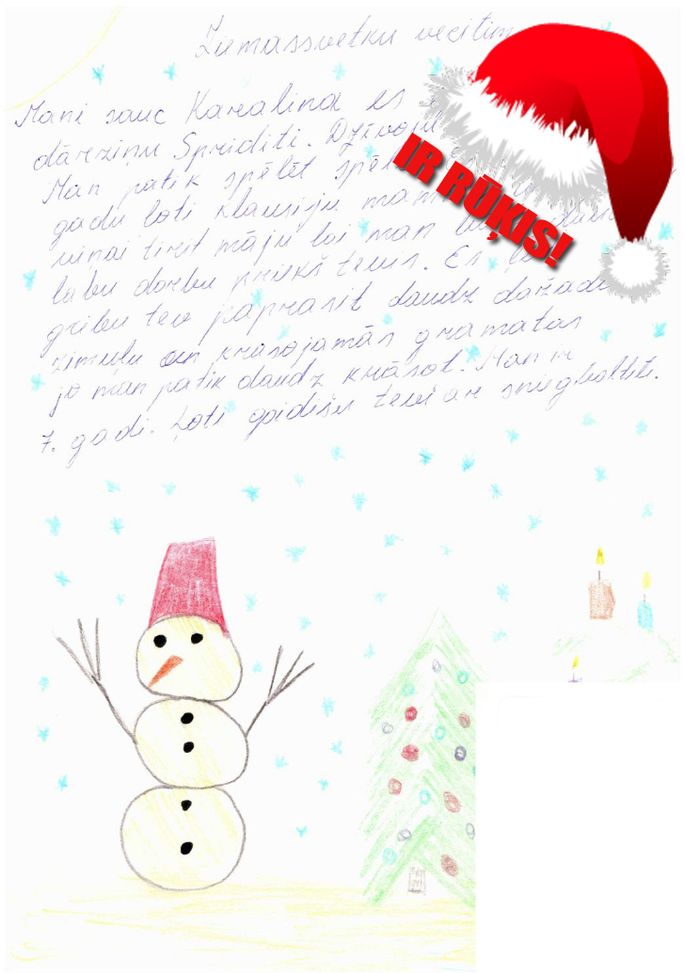 Ziemassvetku vecitim
Mani sauc Karalina es
dārziņu Sprīdīti. Dzīvoju
Man patik spēlēt
gadu ļoti klausiju
tirit māju lai man
labu darbu priekš tevis. Es
gribu tev paprasit daudz dažadu
zimuļu un krāsojamās gramatas
jo man patik daudz krāsot. Man ir
7. gadi. Ļoti gaidišu tevi ar
IR RŪĶIS!